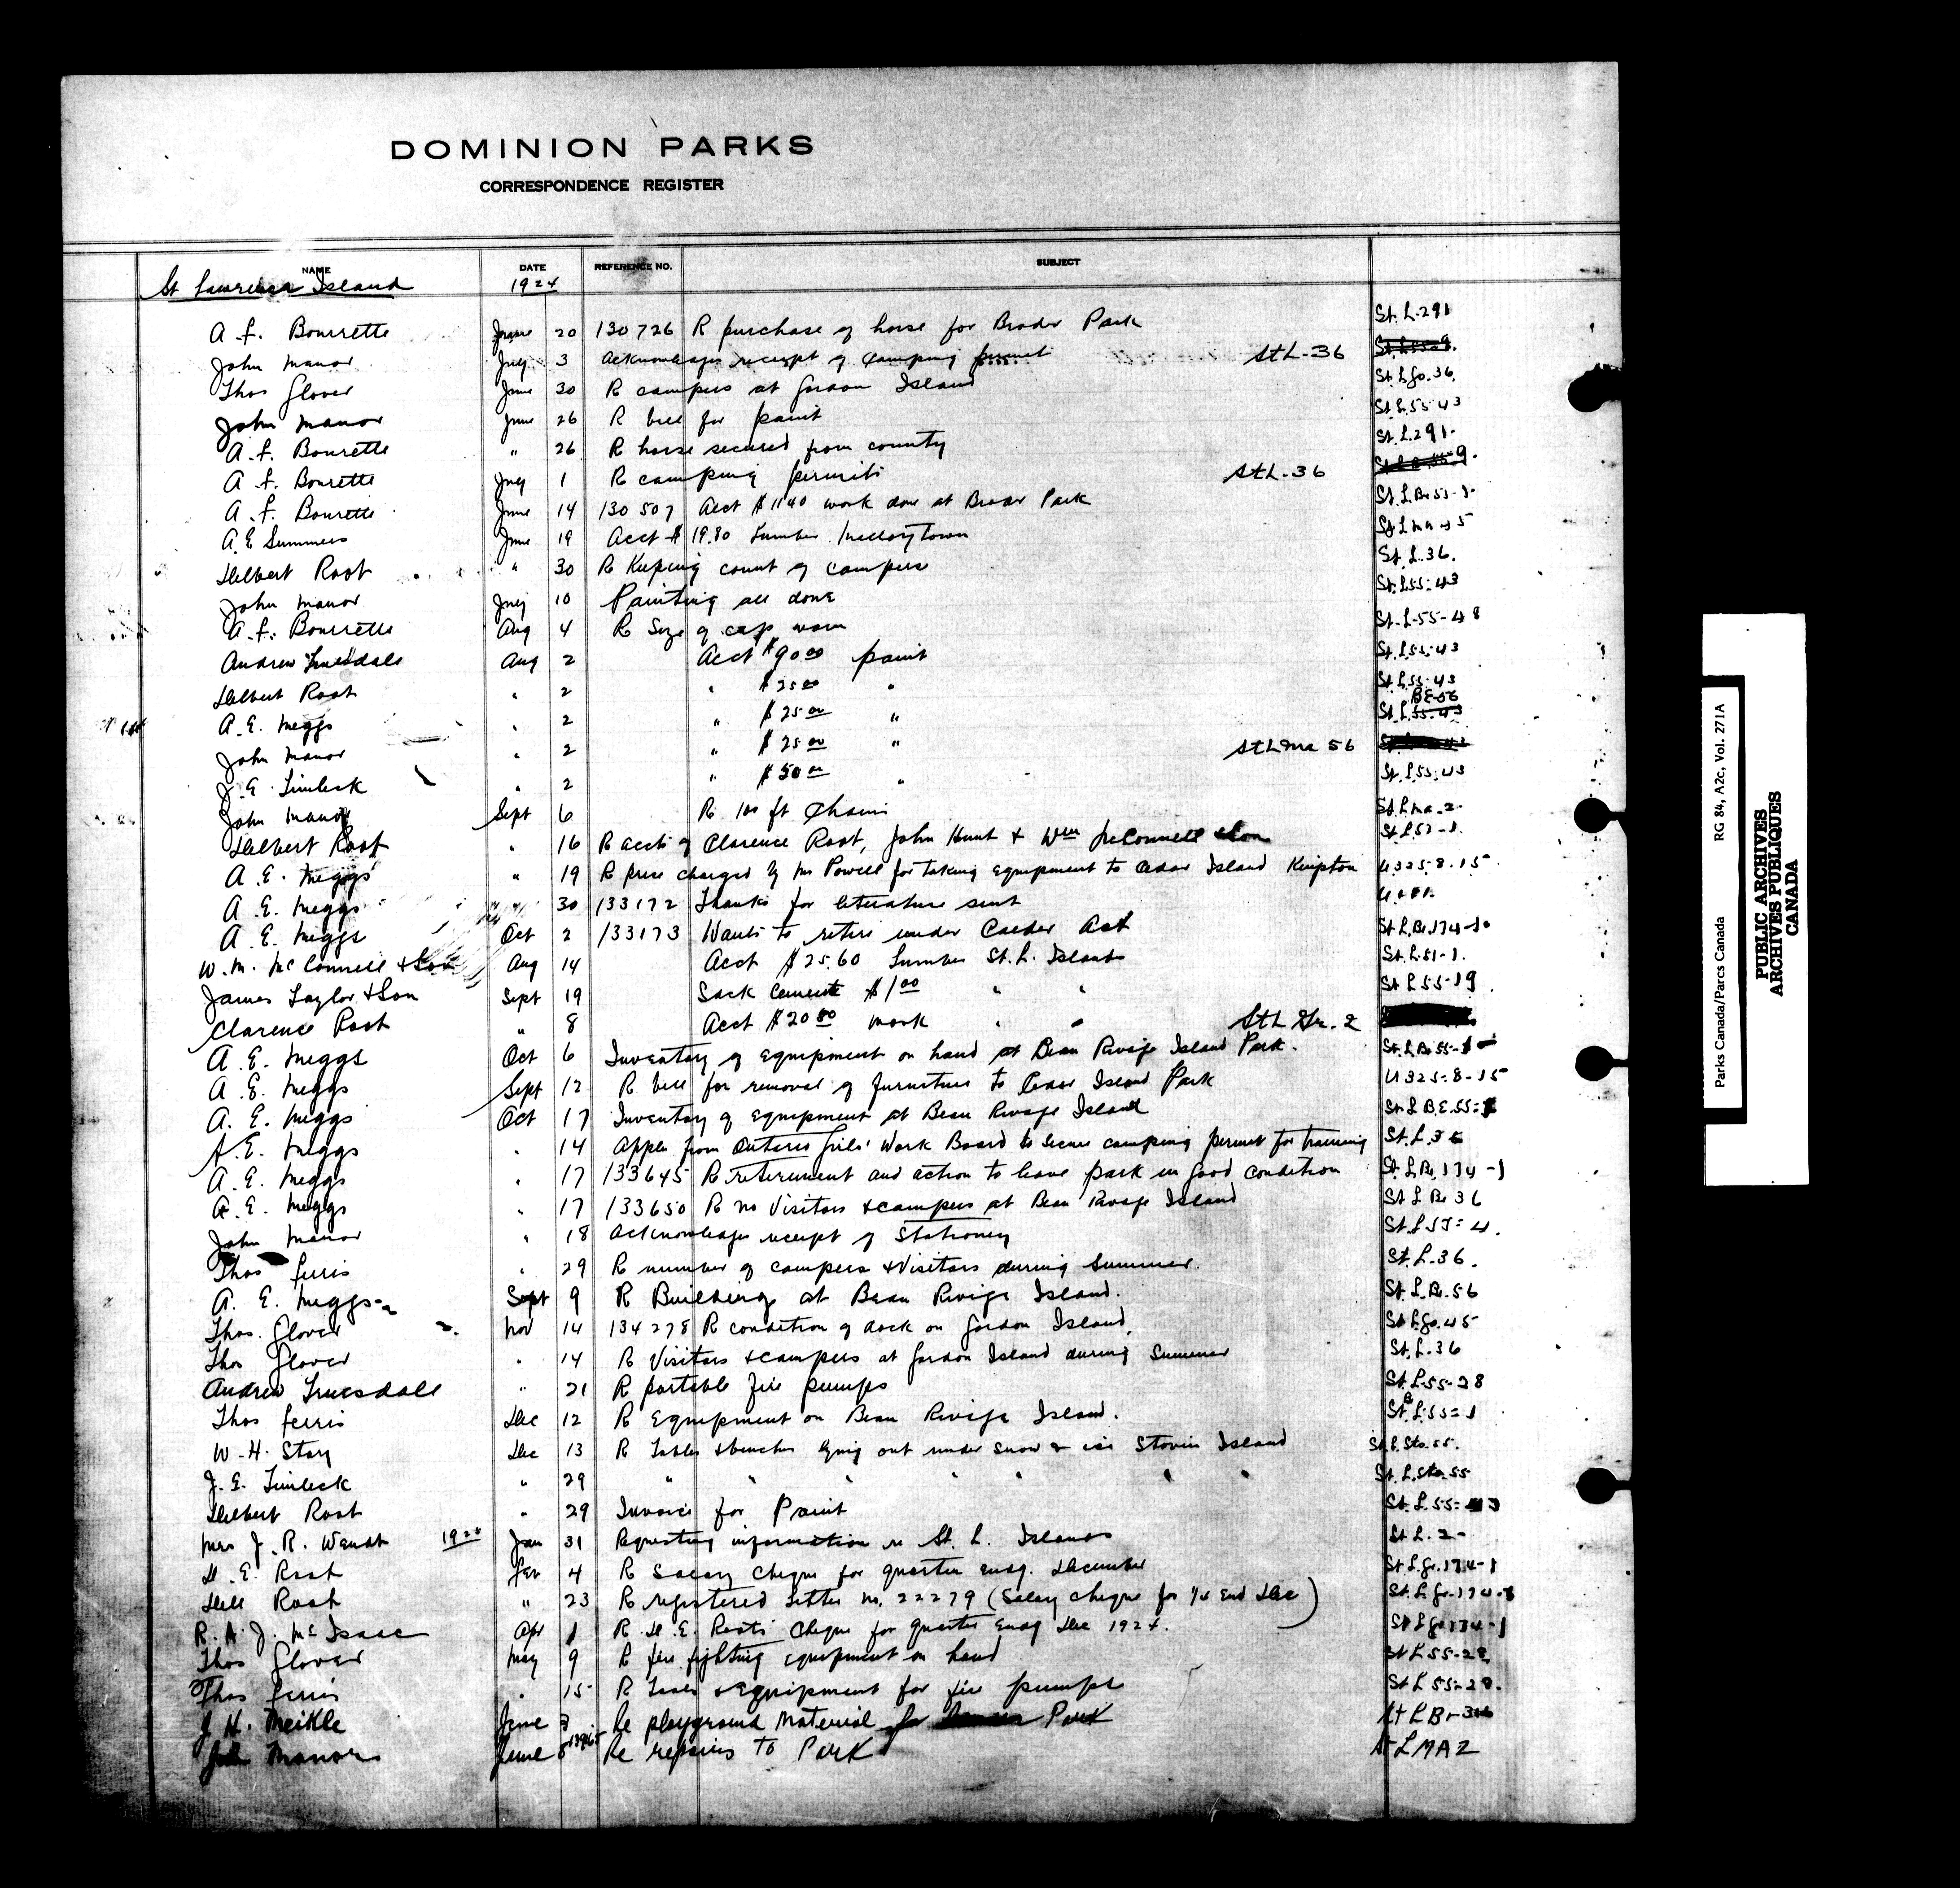 DOMINION PARKS
CORRESPONDENCE REGISTER
NAME DATE REFERENCE NO. SUBJECT
St Lawrence Island 1924
A. L. Bourrette June 20 130726 R purchase of horse for Broder Park St. L. 291
John Manor July 3 Acknowledges receipt of camping permit St L-36
Thos Glover June 30 R campers at Gordon Island St. L Go. 36.
John Manor June 26 R bill for paint St. L 55-43
A. L. Bourette " 26 R horse secured from county St. L. 291.
A L. Bourette July 1 R camping permits St L-36
A. L. Bourette June 14 130507 Acct $ 1140 work done at Broder Park St. L. Br. 55-1-
A. E Summers June 19 Acct $ 19.80 Lumber Mallorytown
Delbert Root " 30 R Keeping count of campers St. L. 36.
John Manor July 10 Painting all done St. L 55-43
A. L. Bourrette Aug 4 R Size of cap worn St. L-55-48
Andrew Truesdale Aug 2 Acct $ 90.00 paint St. L 55-43
Delbert Root " 2 " $ 25.00 " St. L 55-43
A. E. Meggs " 2 " $ 25.00 " BE-56 St. L 55-43
John Manor " 2 " $ 25.00 " St L Ma 56
J. E. Timleck 2 " $ 50.00 " St. L 55-43
John Manor Sept 6 R 100 ft Chain St. L Ma-2-
Delbert Root " 16 R accts of Clarence Root, John Hunt & Wm McConnell & Son St. L 51-1.
A. E. Meggs " 19 R price charged by Mr Powell for taking equipment to Cedar Island Kingston U 325-8-15
A. E. Meggs " 30 133172 Thanks for literature sent
A. E. Meggs Oct 2 133173 Wants to retire under Calder Act St L. Be 174-1.
W. M. McConnell & Son Aug 14 Acct $ 25.60 Lumber St. L. Islands St. L-51-1.
James Taylor & Son Sept 19 Sack Cement $ 1.00 " " St L 55-19
Clarence Root " 8 Acct $ 20.80 work " " St L Gr. 2
A. E. Meggs Oct 6 Inventory of Equipment on hand at Beau Rivage Island Park. St. L Be 55-1
A. E. Meggs Sept 12 R bill for removal of furniture to Cedar Island Park U 325-8-15
A. E. Meggs Oct 17 Inventory of Equipment at Beau Rivage Island St L B.E. 55-1
A. E. Meggs " 14 Appln from Ontario Girls' Work Board to secure camping permit for training St. L. 36
A. E. Meggs " 17 133645 R retirement and action to leave park in good condition St. L. Be. 174-1
A. E. Meggs " 17 133650 R no Visitors & campers at Beau Rivage Island St L Be 36
John Manor " 18 Acknowledges receipt of Stationery St. L 55-4.
Thos Ferris " 29 R number of campers & Visitors during Summer. St. L. 36.
A. E. Meggs Sept 9 R Building at Beau Rivage Island. St. L. Be. 56
Thos. Glover Nov 14 134278 R condition of dock on Gordon Island. St L Go. 45
Thos Glover " 14 R Visitors & campers at Gordon Island during Summer St. L. 36
Andrew Truesdale " 21 R portable fire pumps St. L-55-28
Thos Ferris Dec 12 R Equipment on Beau Rivage Island. St. L. 55-1
W. H. Stay Dec 13 R Tables & benches lying out under snow & ice Stovin Island St. L. Sto. 55.
J. E. Timleck " 29 " " " " " " " St. L. Sto-55
Delbert Root " 29 Invoice for Paint St. L. 55-43
Mrs J. R. Wendt Jan 31 Requesting information re St. L. Islands St L. 2-
D. E. Root Fev 4 R Salary Cheque for quarter endg. December St L Gr. 174-1
Dell Root " 23 R registered letter no. 22279 (Salary cheque for 1/4 End Dec) St. L Gr. 174-1
R. A. J. McIsaac Apr 1 R D. E. Roots Cheque for quarter Endg Dec 1924. St L Gr 174-1
Thos Glover May 9 R fire fighting equipment on hand St L 55-28
Thos Ferris " 15 R Tools & Equipment for fire pumps St L 55-28.
J H. Meikle June Re playground Material for Park St L Br-36
John Manor June 8 Re repairs to Park St L MA 2
Parks Canada/Parcs Canada RG 84, A2c, Vol. 271A
PUBLIC ARCHIVES
ARCHIVES PUBLIQUES
CANADA